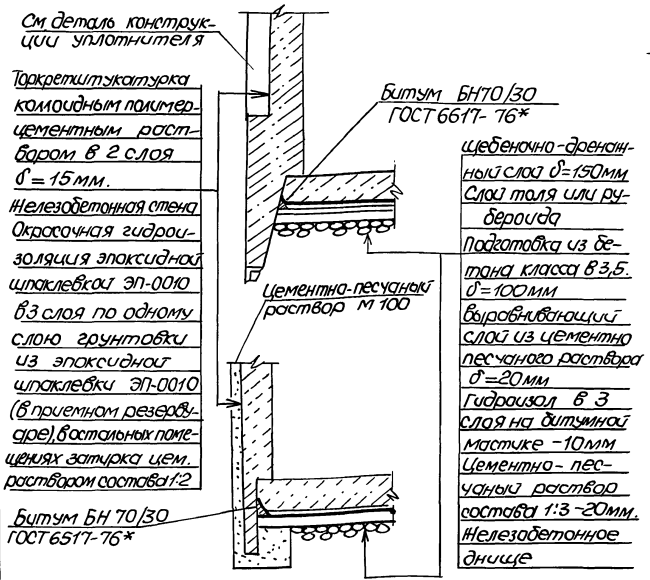 См. деталь конструк-
ции уплотнителя
Торкретштукатурка
коллоидным полимер-
цементным раст-
вором в 2 слоя
δ=15мм.
Железобетонная стена
Окрасочная гидрои-
золяция эпоксидной
шпаклевкой ЭП-0010
в 3 слоя по одному
слою грунтовки
из эпоксидной
шпаклевки ЭП-0010
(в приемном резерву-
аре), в остальных поме-
щениях затирка цем.
раствором состава 1:2
Битум БН 70/30
ГОСТ 6517-76*
Цементно-песчаный
раствор М 100
Битум БН70/30
ГОСТ 6617-76*
щебеночно-дренаж-
ный слой δ=150мм
Слой толя или ру-
бероида
Подготовка из бе-
тона класса В 3,5.
δ=100мм
выравнивающий
слой из цементно
песчаного раствора
δ=20мм
Гидроизол в 3
слоя на битумной
мастике -10мм
Цементно-пес-
чаный раствор
состава 1:3-20мм.
Железобетонное
днище